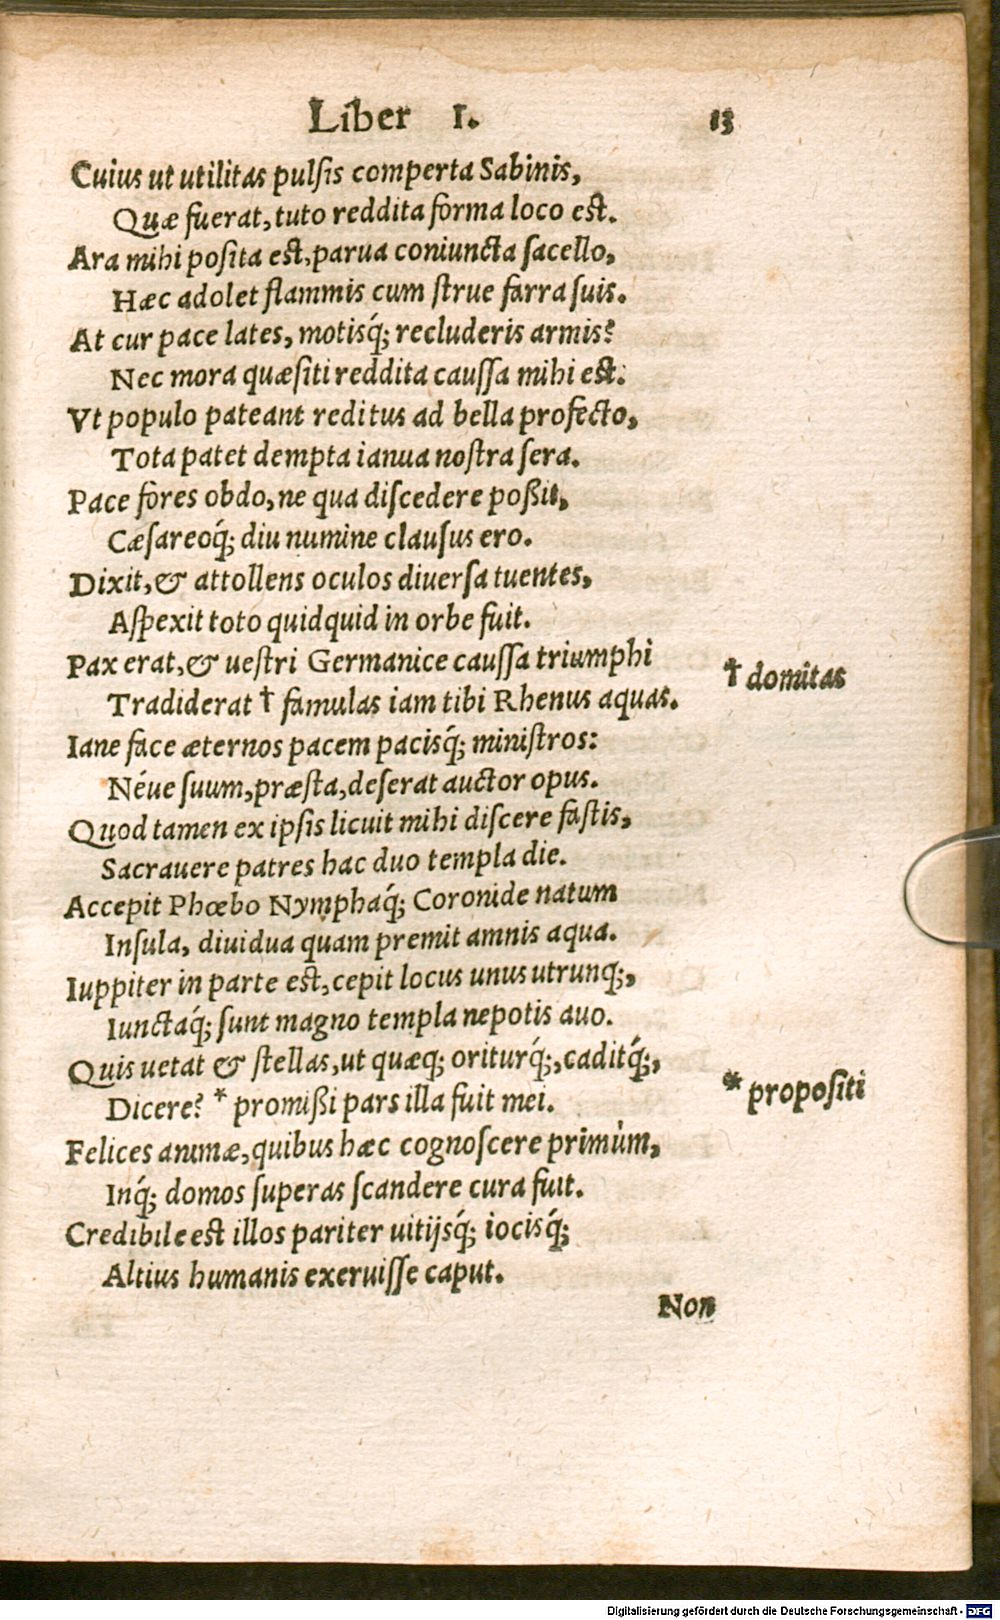 Liber I. 13
Cuius ut utilitas pulſis comperta Sabinis,
Quæ fuerat, tuto reddita forma loco est.
Ara mihi poſita est, parua coniuncta ſacello,
Hæc adolet flammis cum ſtrue farra ſuis.
At cur pace lates, motisq́; recluderis armis?
Nec mora quæſiti reddita cauſſa mihi est.
Vt populo pateant reditus ad bella profecto,
Tota patet dempta ianua noſtra ſera.
Pace fores obdo, ne qua diſcedere poßit,
Cæſareoq́; diu numine clauſus ero.
Dixit, & attollens oculos diuerſa tuentes,
Aſpexit toto quidquid in orbe fuit.
Pax erat, & ueſtri Germanice cauſſa triumphi
† domitas
Tradiderat † famulas iam tibi Rhenus aquas.
Iane face æternos pacem pacisq́; miniſtros:
Néue ſuum, præſta, deſerat auctor opus.
Quod tamen ex ipſis licuit mihi diſcere faſtis,
Sacrauere patres hac duo templa die.
Accepit Phœbo Nymphaq́; Coronide natum
Inſula, diuidua quam premit amnis aqua.
Iuppiter in parte est, cepit locus unus utrunq;,
Iunctaq́; ſunt magno templa nepotis auo.
Quis uetat & ſtellas, ut quæq; oriturq́;, caditq́;,
* propoſiti
Dicere? * promißi pars illa fuit mei.
Felices animæ, quibus hæc cognoſcere primùm,
Inq́; domos ſuperas ſcandere cura fuit.
Credibile est illos pariter uitijsq́; iocisq́;
Altius humanis exeruiſſe caput.
Non
Digitalisierung gefördert durch die Deutsche Forschungsgemeinschaft - DFG